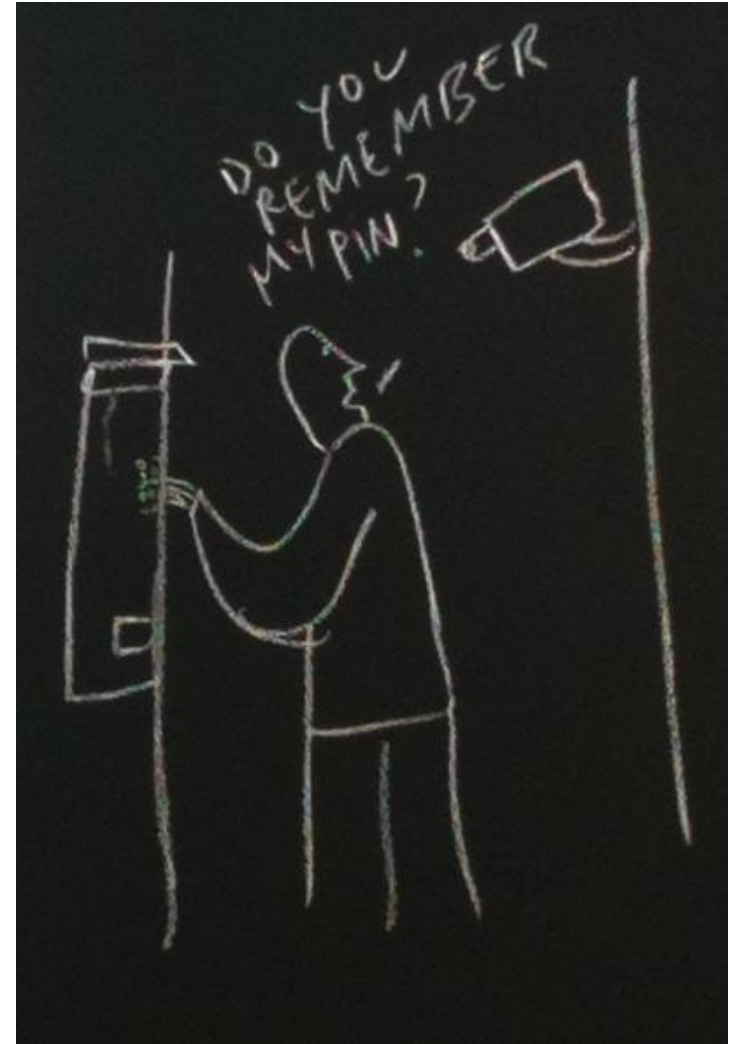 DO YOU
REMEMBER
MY PIN?